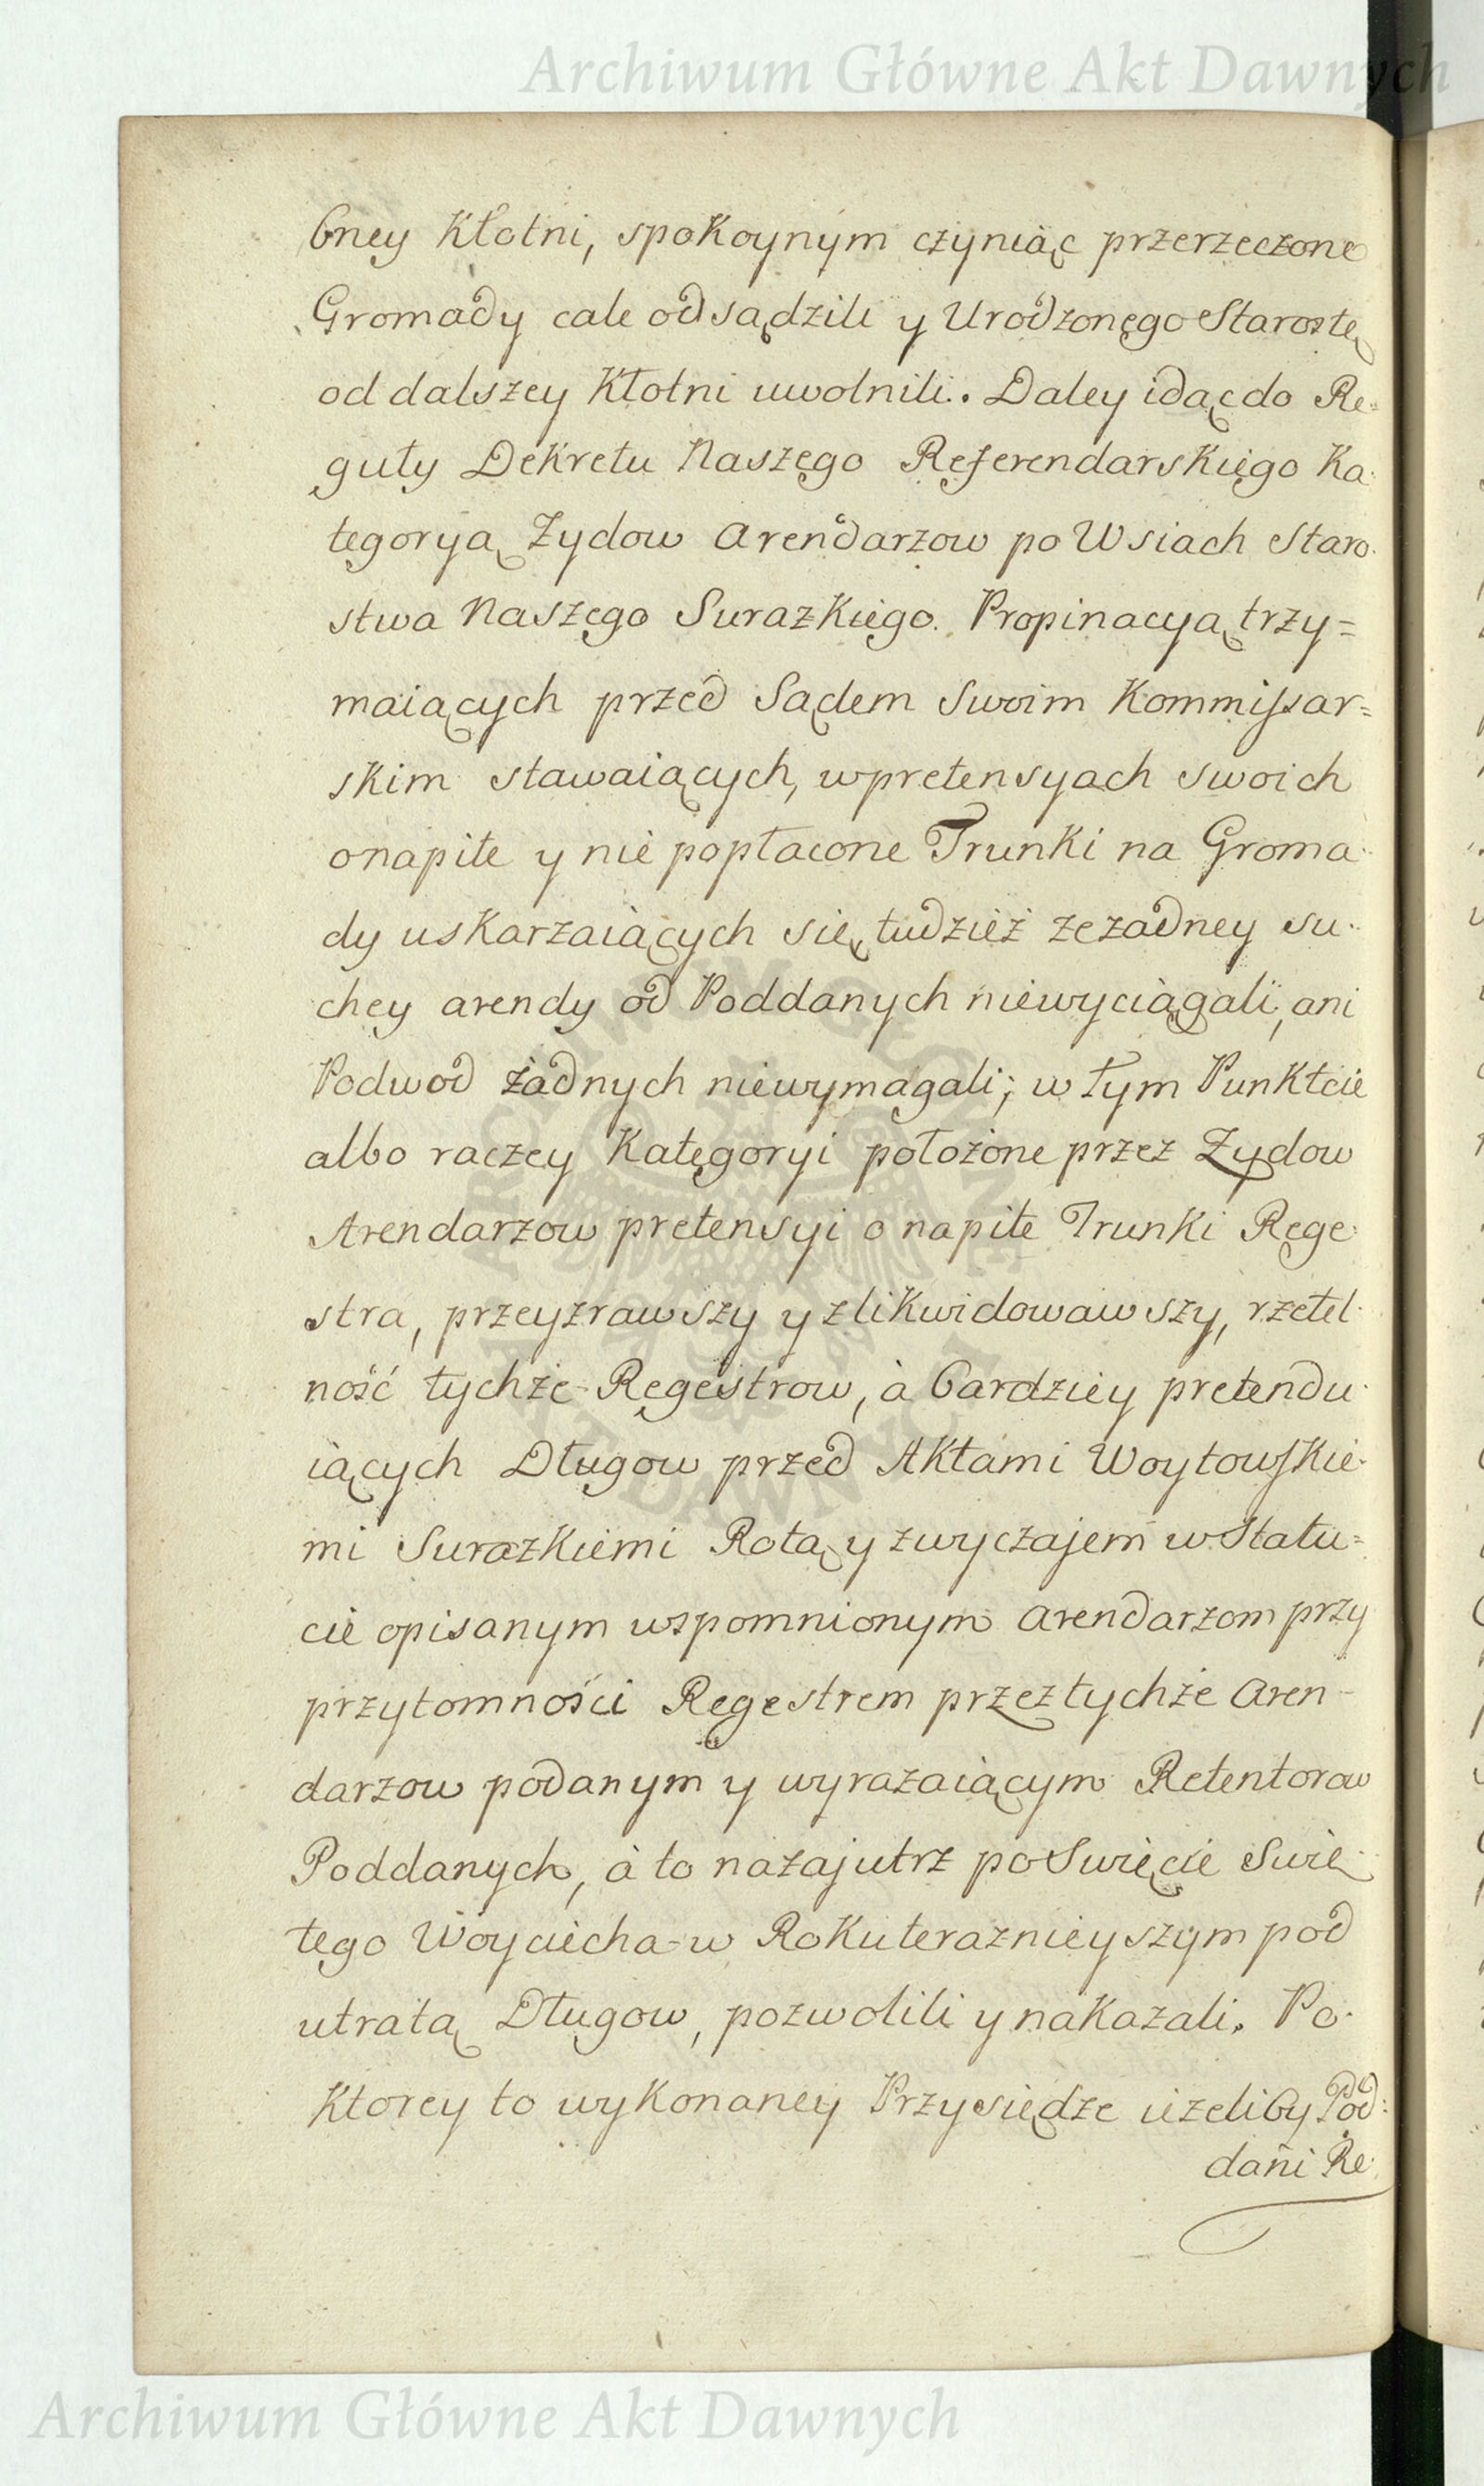 Archiwum Główne Akt Dawnych
bney Kłotni, spokoynym czyniąc przerzeczone
Gromady cale odsądzili y Urodzonego Starostę
od dalszey Kłotni uwolnili. Daley idąc do Re=
guły Dekretu Naszego Referendarskiego Ka=
tegoryą Zydow Arendarzow po Wsiach Staro=
stwa Naszego Surazkiego. Propinacyą trzy=
maiących przed Sądem Swoim Kommissar=
skim stawaiących, w pretensyach swoich
o napite y nie popłacone Trunki na Groma=
dy uskarzaiących się, tudzież ze zadney su=
chey arendy od Poddanych niewyciągali, ani
Podwod żadnych niewymagali; w tym Punktcie
albo raczey Kategoryi położone przez Zydow
Arendarzow pretensyi o napite Trunki Rege=
stra, przeyzrawszy y zlikwidowawszy, rzetel=
ność tychże Regestrow, à bardziey pretendu=
iących Długow przed Aktami Woytowskie=
mi Surazkiemi Rotą y zwyczajem w Statu=
cie opisanym wspomnionym Arendarzom przy
przytomności Regestrem przez tychże Aren=
darzow podanym y wyrazaiącym Retentorow
Poddanych, à to nazajutrz po Swięcie Swię=
tego Woyciecha w Roku teraznieyszym pod
utratą Długow, pozwolili y nakazali. Po=
Ktorey to wykonaney Przysiędze ieżeliby Pod=
dani Re=
Archiwum Główne Akt Dawnych